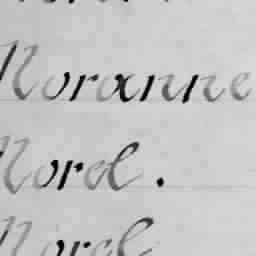 Moranne
Morel.
Morel